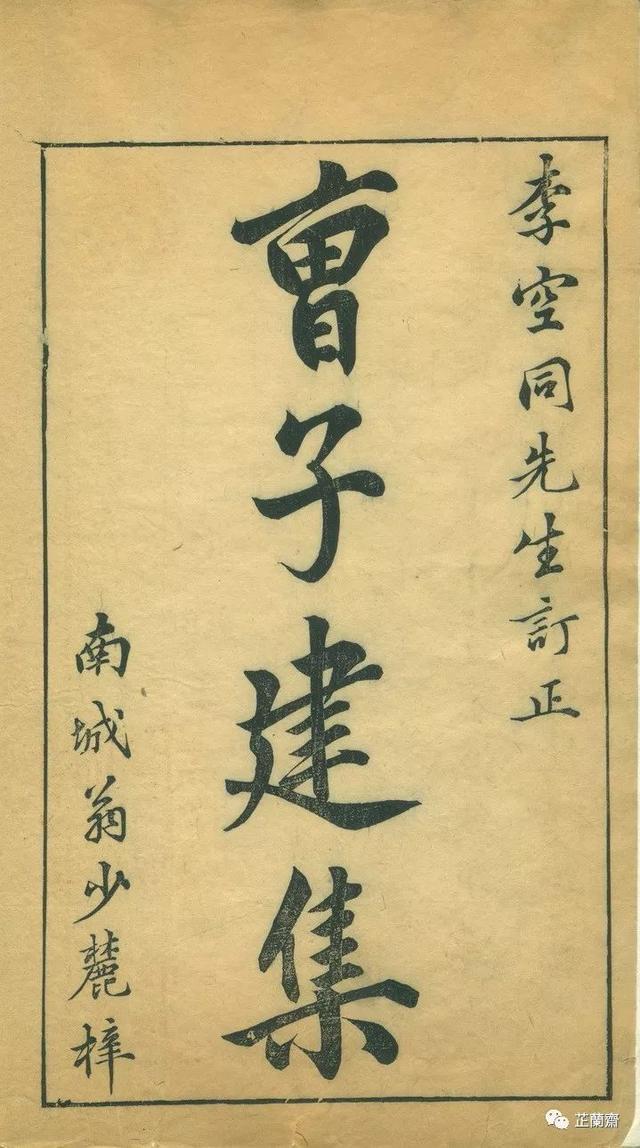 李空同先生訂正
曹子建集
南城翁少麓梓
芷蘭齋